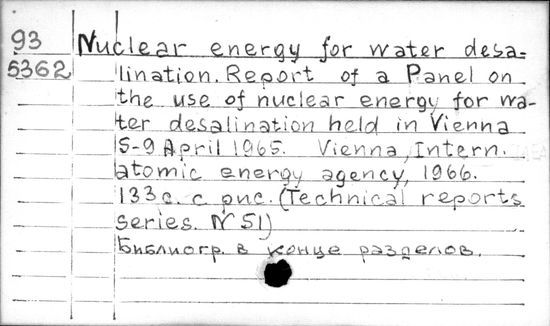 93 Nuclear energy for water desa-
5362 lination. Report of a Panel on
the use of nuclear energy for wa-
ter desalination held in Vienna
5-9 April 1965. Vienna, Intern.
atomic energy agency, 1966.
133с. с рис. (Technical reports
series. N 51)
Библиогр. в конце разделов.